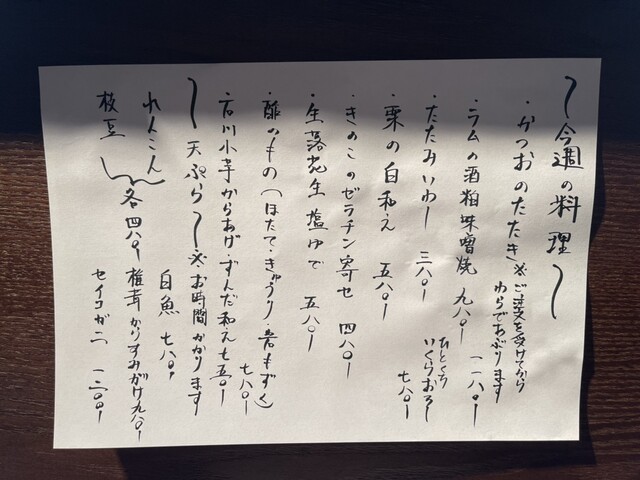 〜今週の料理〜
・かつおのたたき ※ご注文を受けてから
わらであぶります
一一八〇ー
・ラムの酒粕味噌焼 九八〇ー
・たたみいわし 三八〇ー
ひとくち
いくらおろし
七八〇ー
・栗の白和え 五八〇ー
・きのこのゼラチン寄せ 四八〇ー
・生落花生塩ゆで 五八〇ー
・酢のもの(ほたて・きゅうり・岩もずく)
七八〇ー
・石川小芋からあげ・ずんだ和え 七五〇ー
〜天ぷら〜 ※お時間かかります
れんこん
枝豆
各四八〇ー
白魚 七八〇ー
椎茸かりすみがけ 九八〇ー
セイコガニ 一二〇〇ー